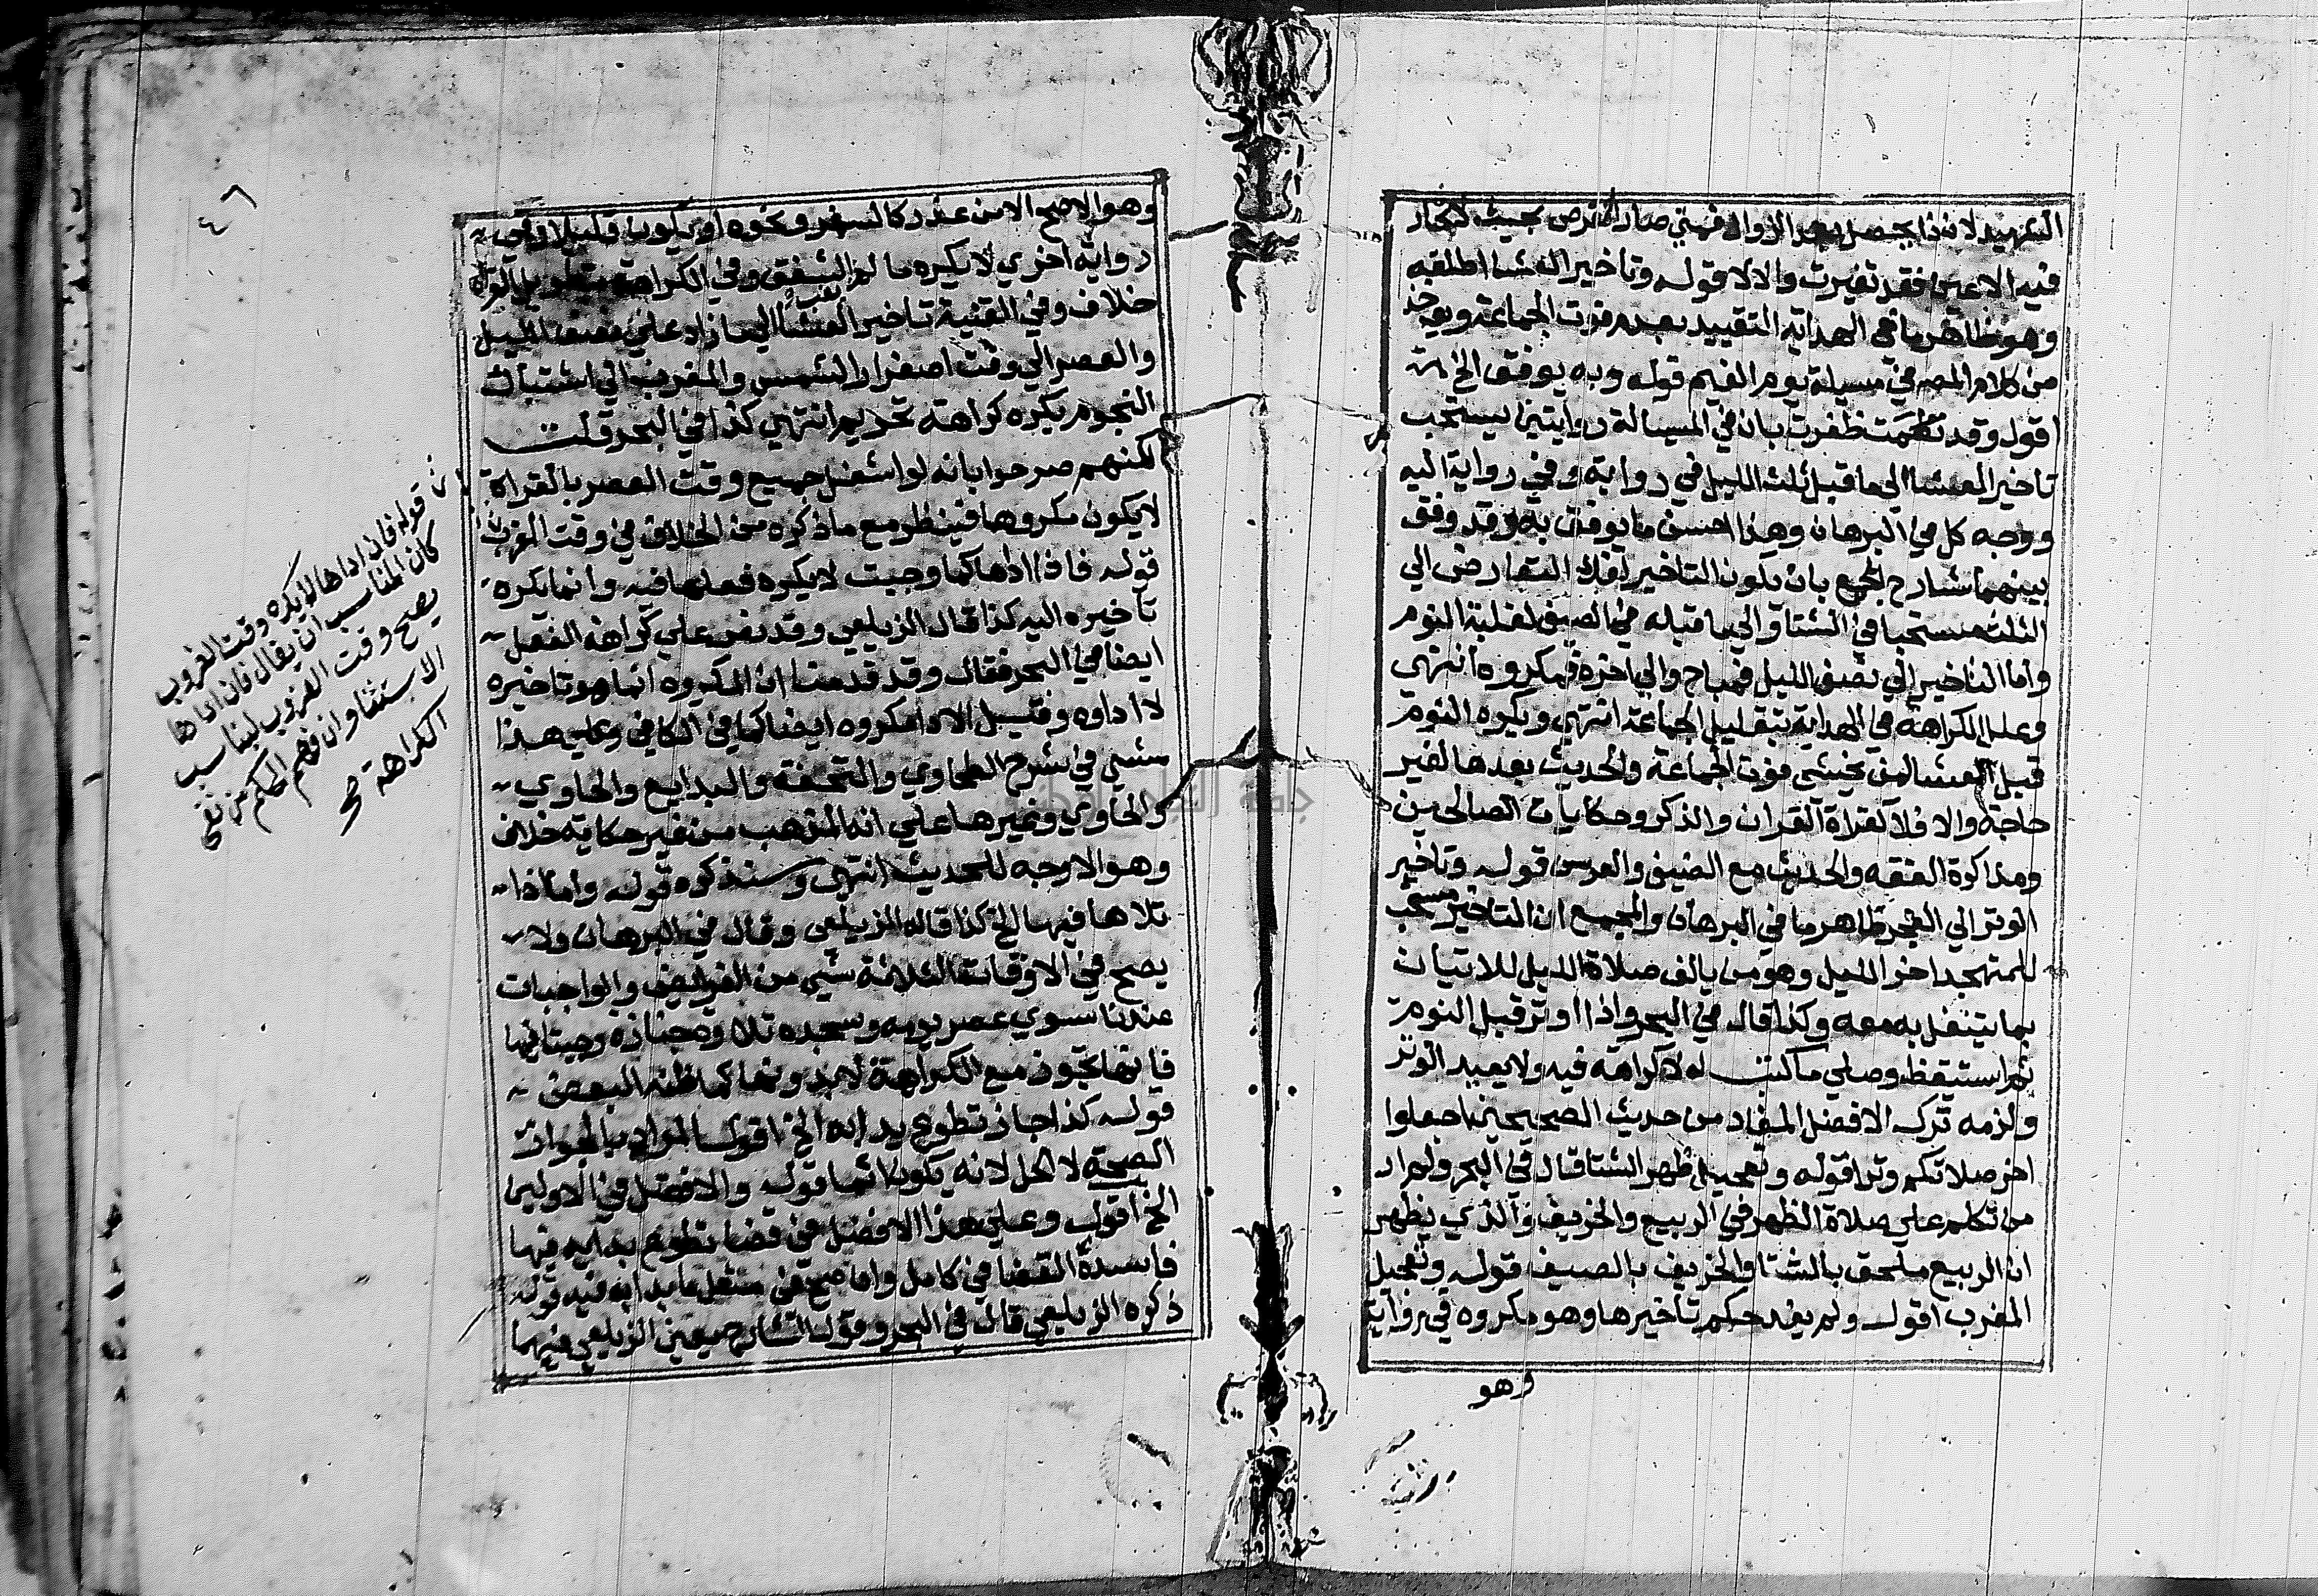 التغيير لان ذا يحصل بعد الزوال فمتي صار القرص بحيث لا تحار
فيه الاعين فقد تغيرت والا لا قوله وتاخير العشا اطلقه
وهو ظاهر ما في الهداية التقييد بعدم فوت الجماعة ويوخذ
من كلام المصـ في مسيلة يوم الغيم قوله وبه يوفق الخ
اقول وقد ظفرت بان في المسالة روايتين يستحب
تاخير العشا الي ما قبل ثلث الليل في رواية وفي رواية اليه
ووجه كل في البرهان وهذا احسن ما يوفق به وقد وفق
بينهما شارح المجمع بان يكون التاخير لفك التعارض الي
الثلث مستحبا في الشتا والي ما قبله في الصيف لغلبة النوم
واما التاخير الي نصف الليل فمباح والي اخره فمكروه انتهي
وعلل الكراهة في الهداية بتقليل الجماعة انتهي ويكره النوم
قبل العشا لمن يخشي فوت الجماعة والحديث بعدها لغير
حاجة والا فلا كقراة القران والذكر وحكايات الصالحين
ومذاكرة الفقه والحديث مع الضيف والعرس قوله وتاخير
الوتر الي الفجر ظاهر ما في البرهان والمجمع ان التاخير مستحب
للمتهجد اخر الليل وهو من يالف صلاة الليل للاتيان
بما يتنفل به معه وكذا قال في البحر واذا اوتر قبل النوم
ثم استيقظ وصلي ما كتب له لا كراهة فيه ولا يعيد الوتر
ولزمه ترك الافضل المفاد من حديث الصحيحين اجعلوا
اخر صلاتكم وترا قوله وتعجيل ظهر الشتا قال في البحر ولم ار
من تكلم علي صلاة الظهر في الربيع والخريف والذي يظهر
ان الربيع ملحق بالشتا والخريف بالصيف قوله وتعجيل
المغرب اقول ولم يفد حكم تاخيرها وهو مكروه في رواية
وهو
٤٦
وهو الاصح الا من عذر كالسفر ونحوه او يكون قليلا وفي
رواية اخري لا يكره ما لم يغب الشفق وفي الكراهة بتطويل القراة
خلاف وفي القنية تاخير العشا الي ما زاد علي نصف الليل
والعصر الي وقت اصفرار الشمس والمغرب الي اشتباك
النجوم يكره كراهة تحريم انتهي كذا في البحر قلت
لكنهم صرحوا بانه لو اشغل جميع وقت العصر بالقراة
لا يكون مكروها فينظر مع ما ذكره من الخلاف في وقت المغرب
قوله فاذا اداها كما وجبت لا يكره فعلها فيه وانما يكره
تاخيره اليه كذا قال الزيلعي وقد نص علي كراهة الفعل
ايضا في البحر فقال وقد قدمنا ان المكروه انما هو تاخيره
لا اداوه وقيل الادا مكروه ايضا كما في الكافي وعلي هذا
مشي في شرح الطحاوي والتحفة والبدايع والحاوي
والحاوي وغيرها علي انه المذهب من غير حكاية خلاف
وهو الاوجه للحديث انتهي وسنذكره قوله واما اذا
تلاها فيها الخ كذا قاله الزيلعي وقال في البرهان ولا
يصح في الاوقات الثلاثة شي من الفرايض والواجبات
عندنا سوي عصر يومه وسجدة تلاوة وجنازة وجبتا فيها
فانها تجوز مع الكراهة لا بدونها كما ظنه البعض
قوله كذا جاز تطوع بدا به الخ اقول المراد بالجواز
الصحة لا الحل لانه يكون اثما قوله والافضل في الاولين
الخ اقول وعلي هذا الافضل في قضا تطوع بدا به فيها
فافسده القضا في كامل واما صح في مثل ما بدا به فيه قوله
ذكره الزيلعي قال في البحر وقول الشارح يعني الزيلعي فيهما
قوله فان اداها لا يكره وقت الغروب
كان المناسب ان يقال فان اداها
يصح وقت الغروب ليناسب
الاستثنا وان فهم الحكم من نفي
الكراهة صح